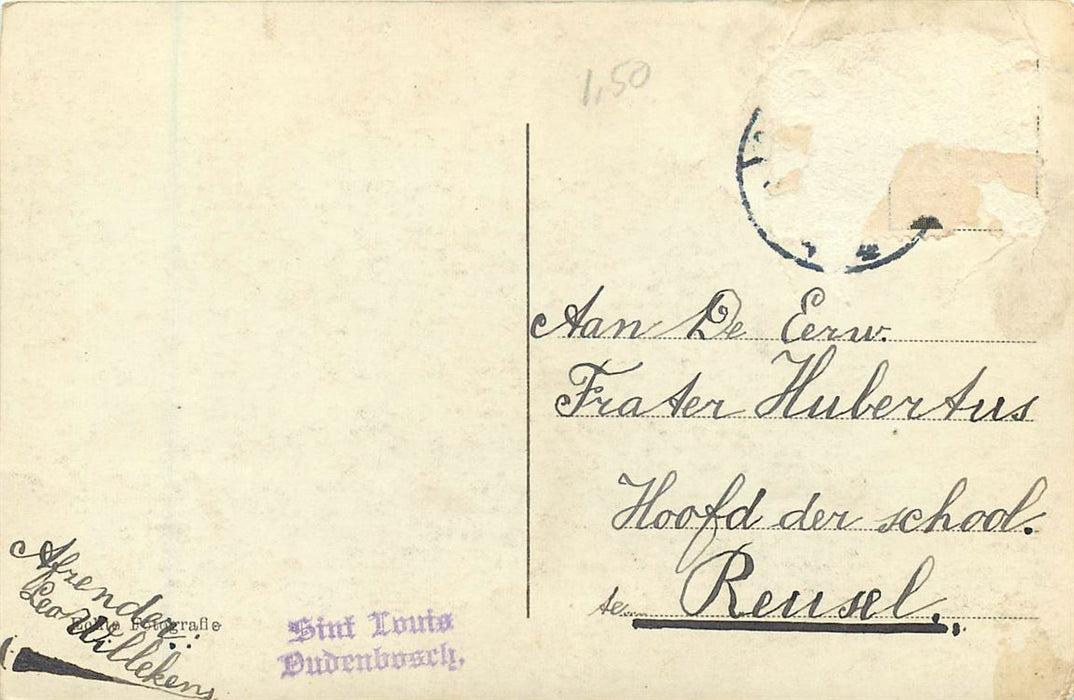 1,50
Aan De Eerw.
Frater Hubertus
Hoofd der school.
te Reusel.
Afzender:
Leo Willekens
Echte Fotografie
Sint Louis
Oudenbosch.